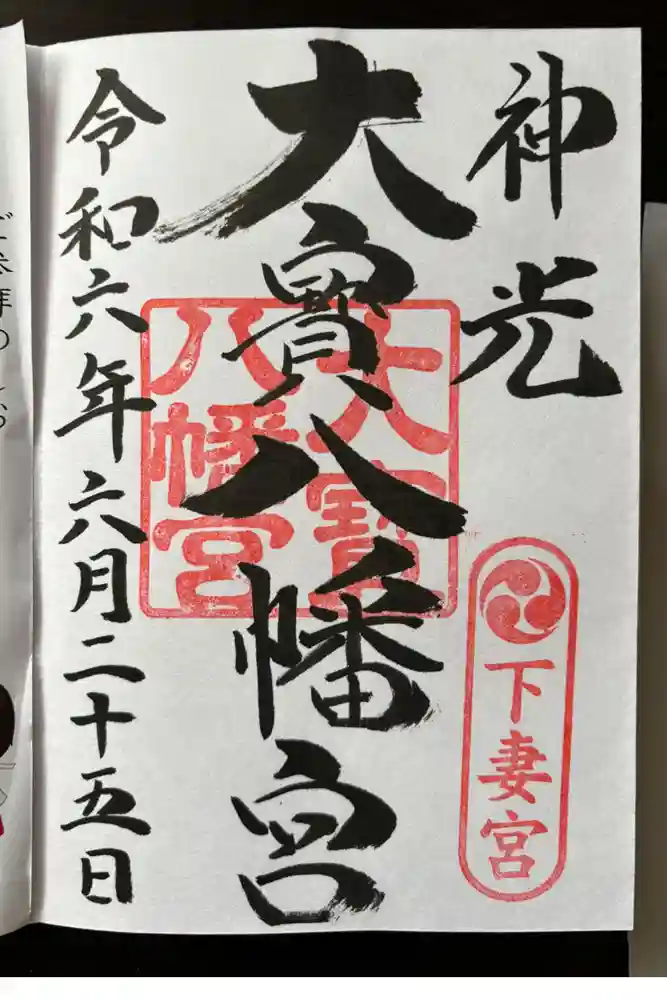 神光
大寳八幡宮
大寳
八幡宮
下妻宮
令和六年六月二十五日